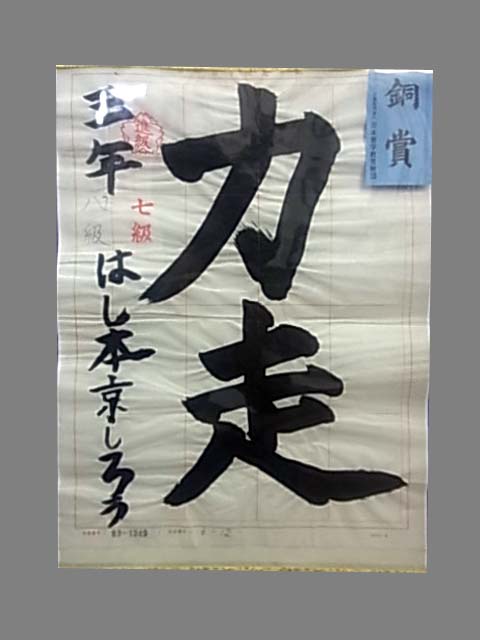 力走
五年 はし本京しろう
八級
七級
銅賞